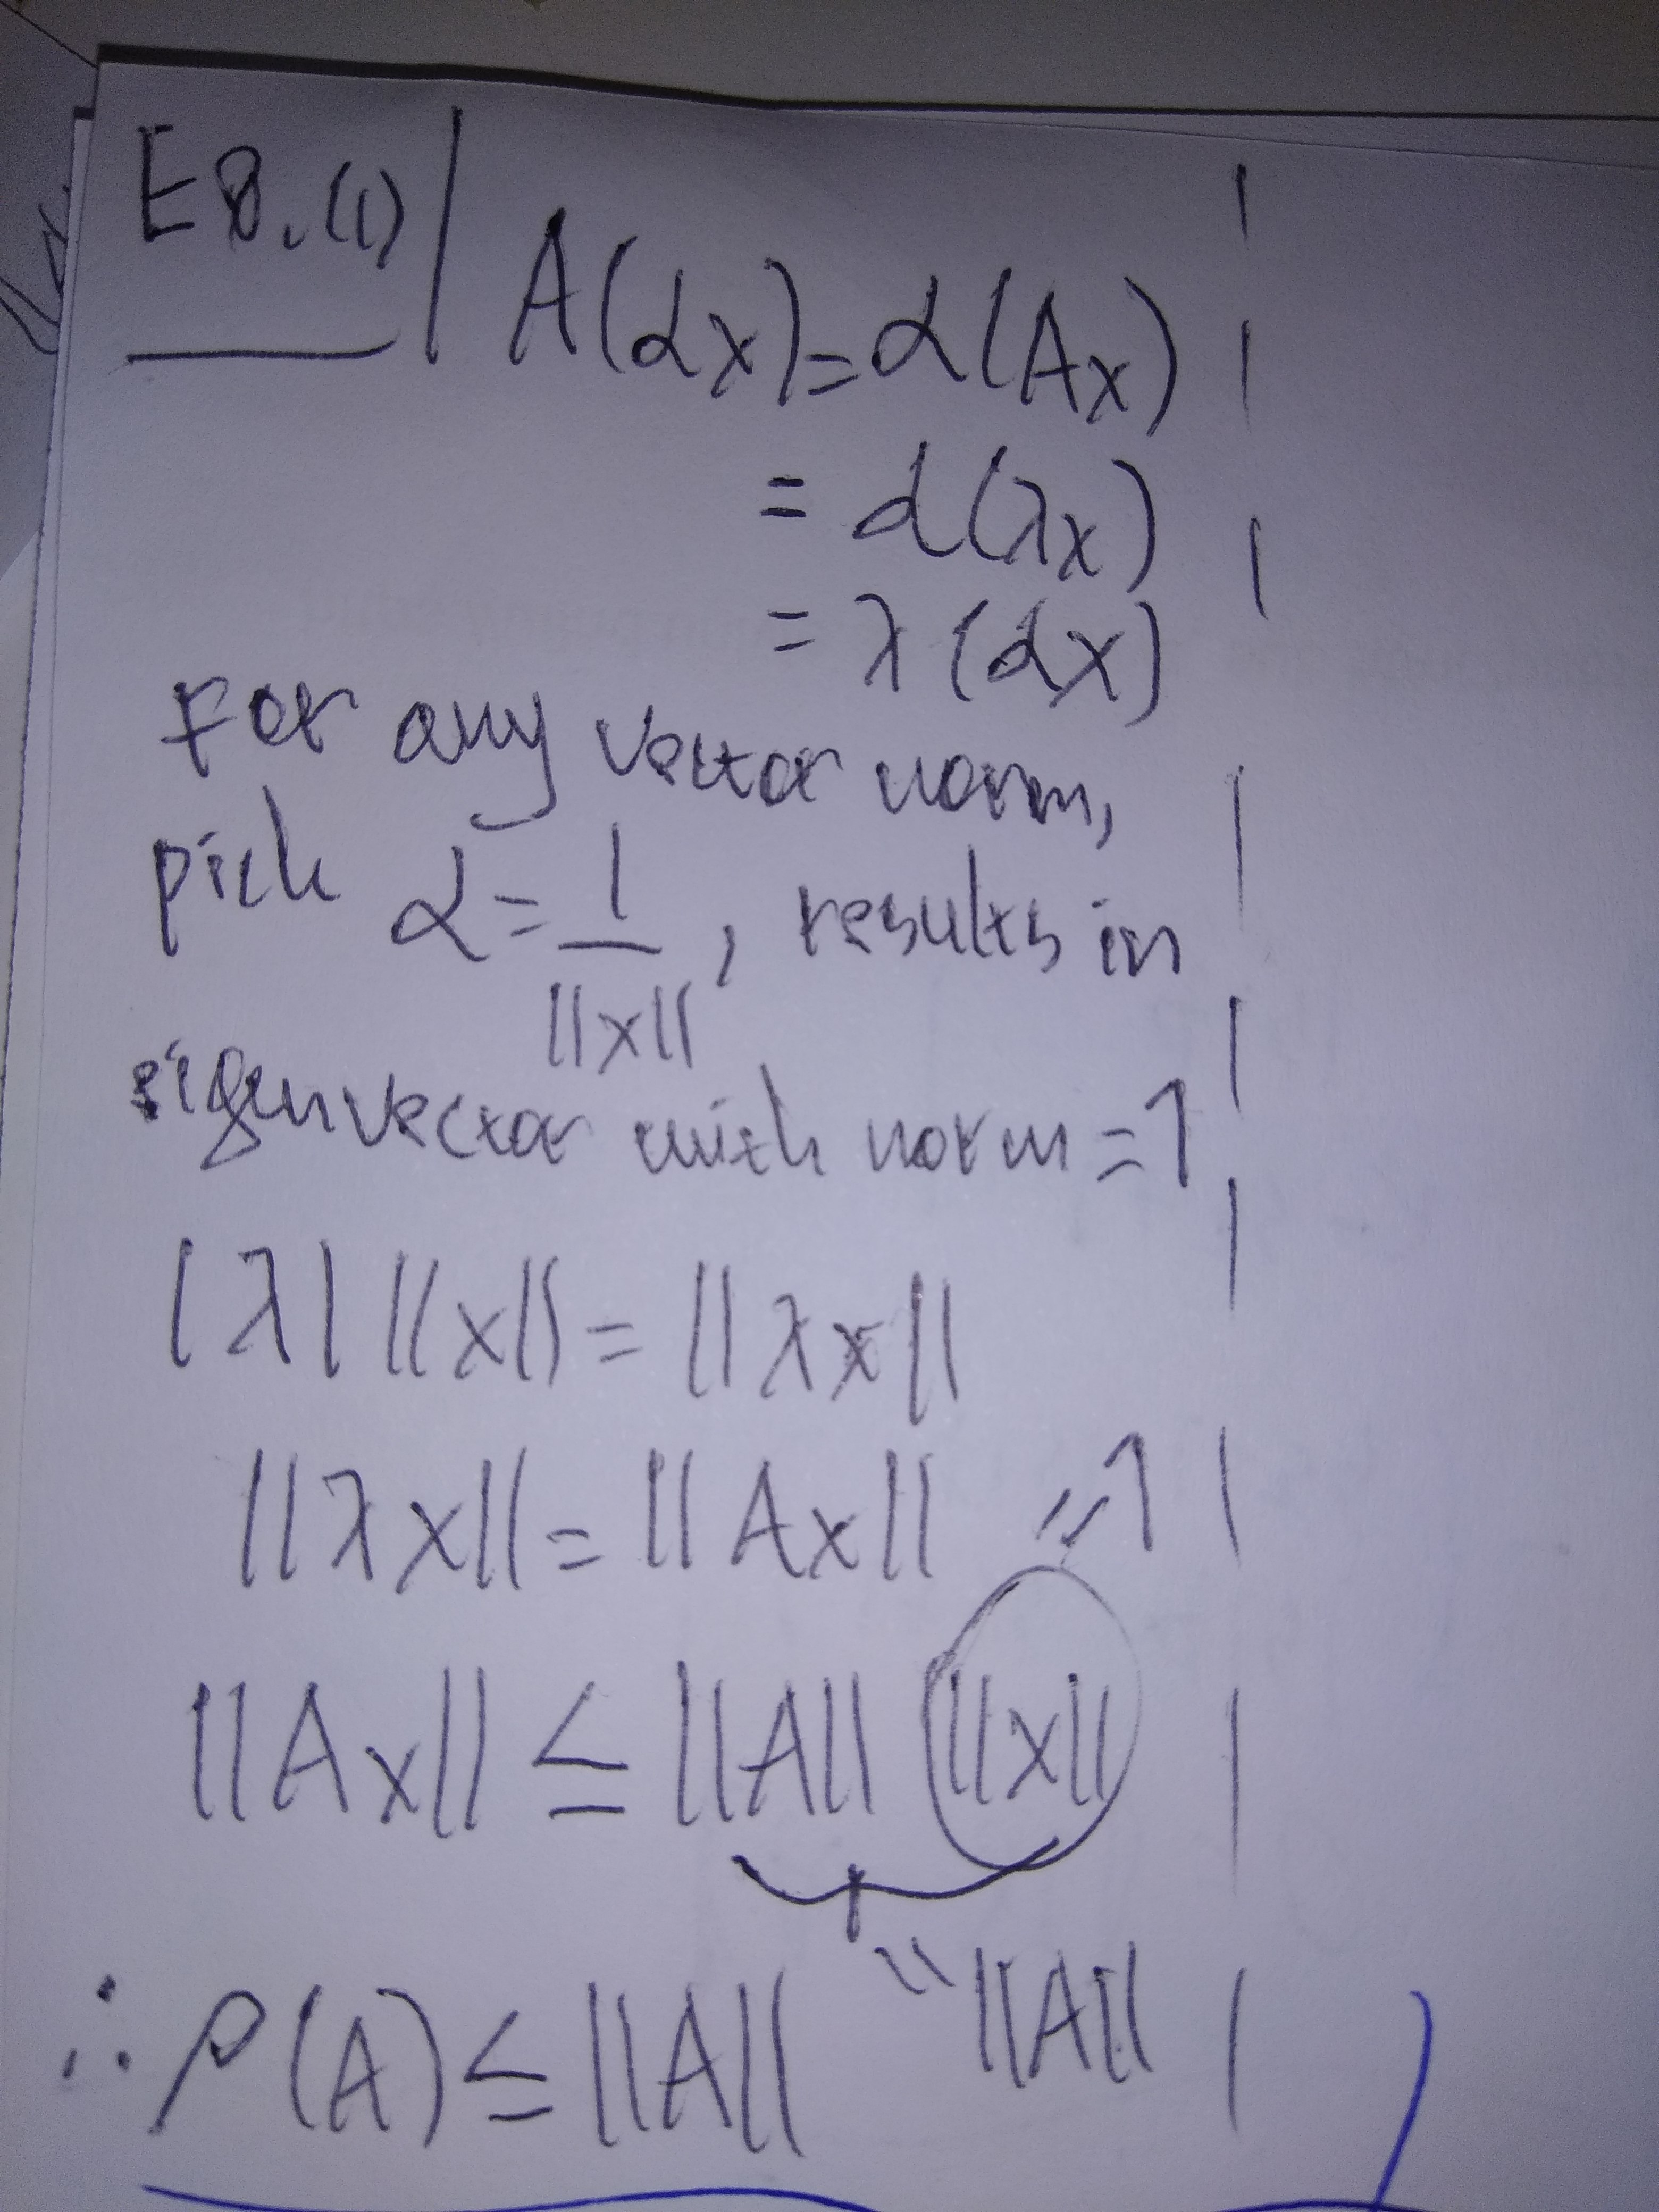 E8.(1)
A(αx)=α(Ax)
= α(λx)
= λ(αx)
For any vector norm,
pick α = 1/||x|| , results in
eigenvector with norm=1
|λ| ||x|| = ||λx||
||λx|| = ||Ax|| =1
||Ax|| ≤ ||A|| ||x||
∴ ρ(A) ≤ ||A|| = ||A||